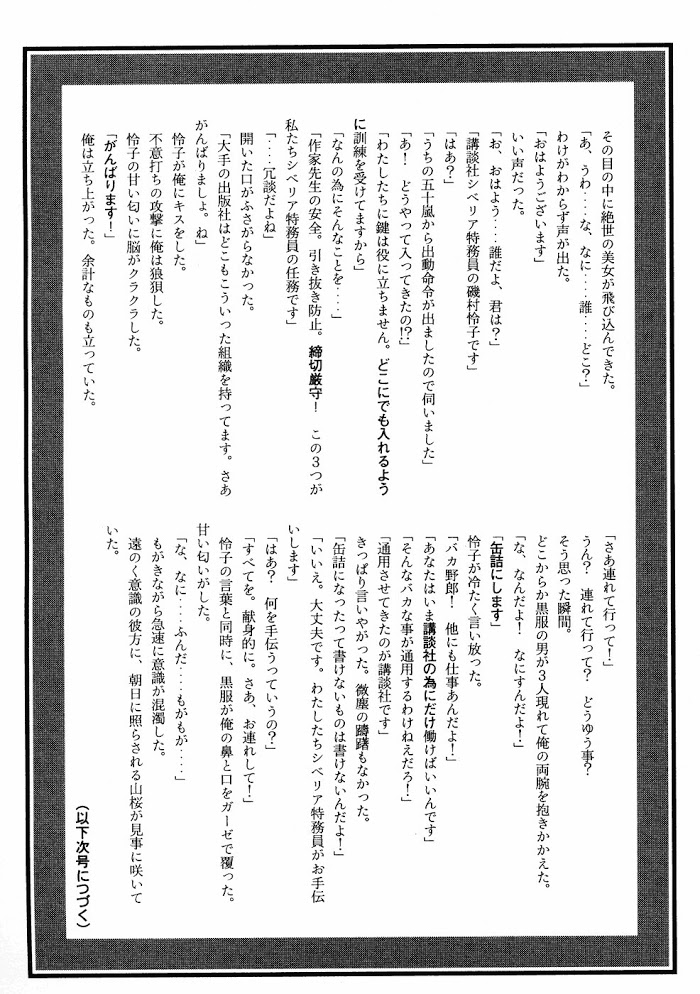 その目の中に絶世の美女が飛び込んできた。
「あ、うわ･･･な、なに･･･誰･･･どこ？」
わけがわからず声が出た。
「おはようございます」
いい声だった。
「お、おはよう･･･誰だよ、君は？」
「講談社シベリア特務員の磯村怜子です」
「はあ？」
「うちの五十嵐から出動命令が出ましたので伺いました」
「あ！　どうやって入ってきたの!?」
「わたしたちに鍵は役に立ちません。どこにでも入れるよう
に訓練を受けてますから」
「なんの為にそんなことを･･･」
「作家先生の安全。引き抜き防止。締切厳守！　この３つが
私たちシベリア特務員の任務です」
「･･･冗談だよね」
開いた口がふさがらなかった。
「大手の出版社はどこもこういった組織を持ってます。さあ
がんばりましょ。ね」
怜子が俺にキスをした。
不意打ちの攻撃に俺は狼狽した。
怜子の甘い匂いに脳がクラクラした。
「がんばります！」
俺は立ち上がった。余計なものも立っていた。
「さあ連れて行って！」
うん？　連れて行って？　どうゆう事？
そう思った瞬間。
どこからか黒服の男が３人現れて俺の両腕を抱きかかえた。
「な、なんだよ！　なにすんだよ！」
「缶詰にします」
怜子が冷たく言い放った。
「バカ野郎！　他にも仕事あんだよ！」
「あなたはいま講談社の為にだけ働けばいいんです」
「そんなバカな事が通用するわけねえだろ！」
「通用させてきたのが講談社です」
きっぱり言いやがった。微塵の躊躇もなかった。
「缶詰になったって書けないものは書けないんだよ！」
「いいえ。大丈夫です。わたしたちシベリア特務員がお手伝
いします」
「はあ？　何を手伝うっていうの？」
「すべてを。献身的に。さあ、お連れして！」
怜子の言葉と同時に、黒服が俺の鼻と口をガーゼで覆った。
甘い匂いがした。
「な、なに･･･ふんだ･･･もがもが･･･」
もがきながら急速に意識が混濁した。
遠のく意識の彼方に、朝日に照らされる山桜が見事に咲いて
いた。
（以下次号につづく）